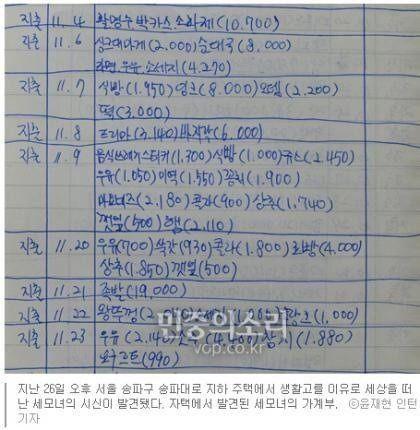 지출 11.4 활명수 박카스.소화제(10.700)
지출 11.6 싱크대마개(2.000) 순대국(8.000)
라면.우유.소세지(4.270)
지출 11.7 식빵(1.950) 잉크(8.000) 오뎅(2.200)
떡(3.000)
지출 11.8 (3.140) (6.000)
지출 11.9 음식쓰레기스티커(1.300) 식빵(1.000) 쥬스(2.450)
우유(1.050) 미역(1.550) 꽁치(1.900)
마요네즈(2.180) 콜라(900) 상추(1.740)
깻잎(500) 햄(2.110)
지출 11.20 우유(700) 쑥갓(930) 콜라(1.800) 초밥(4.000)
상추(1.850) 깻잎(500)
지출 11.21 족발(19,000)
지출 11.22 왕뚜껑 (1,000)
지출 11.23 우유 참치(1.880)
요구르트(990)
민중의소리
vop.co.kr
지난 26일 오후 서울 송파구 송파대로 지하 주택에서 생활고를 이유로 세상을 떠
난 세모녀의 시신이 발견됐다. 자택에서 발견된 세모녀의 가계부. ©윤재현 인턴
기자